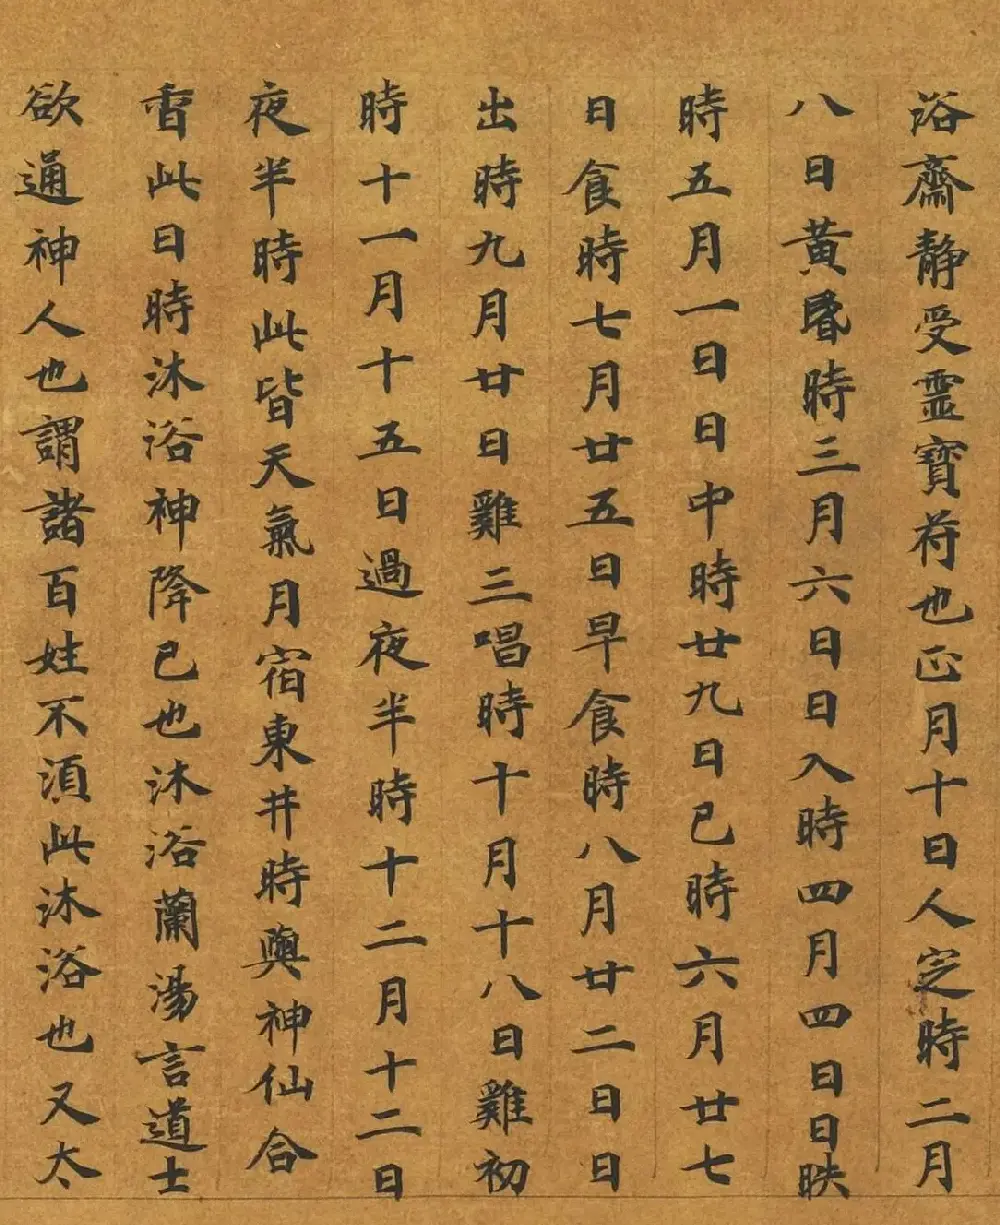 浴齋静受靈寳符也正月十日人定時二月
八日黄昬時三月六日日入時四月四日日昳
時五月一日日中時廿九日巳時六月廿七
日食時七月廿五日早食時八月廿二日日
出時九月廿日雞三唱時十月十八日雞初
時十一月十五日過夜半時十二月十二日
夜半時此皆天氣月宿東井時與神仙合
㫖此日時沐浴神降已也沐浴蘭湯言道士
欲通神人也謂諸百姓不湏此沐浴也又太